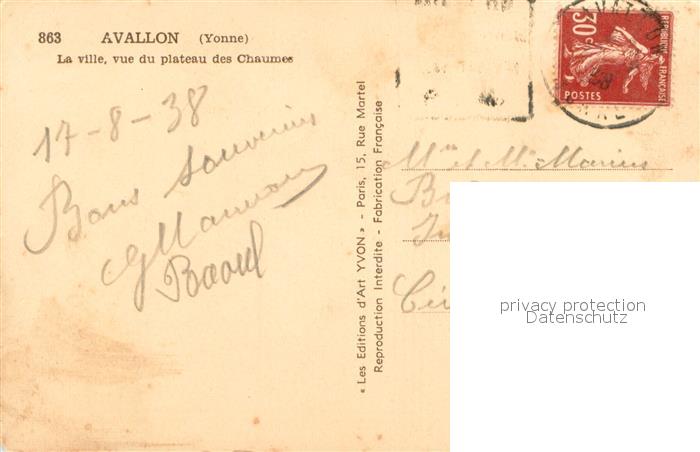 863 AVALLON (Yonne)
La ville, vue du plateau des Chaumes
17-8-38
Bons Souvenirs
Raoul
« Les Editions d'Art YVON » - Paris, 15, Rue Martel
Reproduction Interdite - Fabrication Française
30c
REPUBLIQUE FRANÇAISE
POSTES
Mme et Mr Marius
privacy protection
Datenschutz